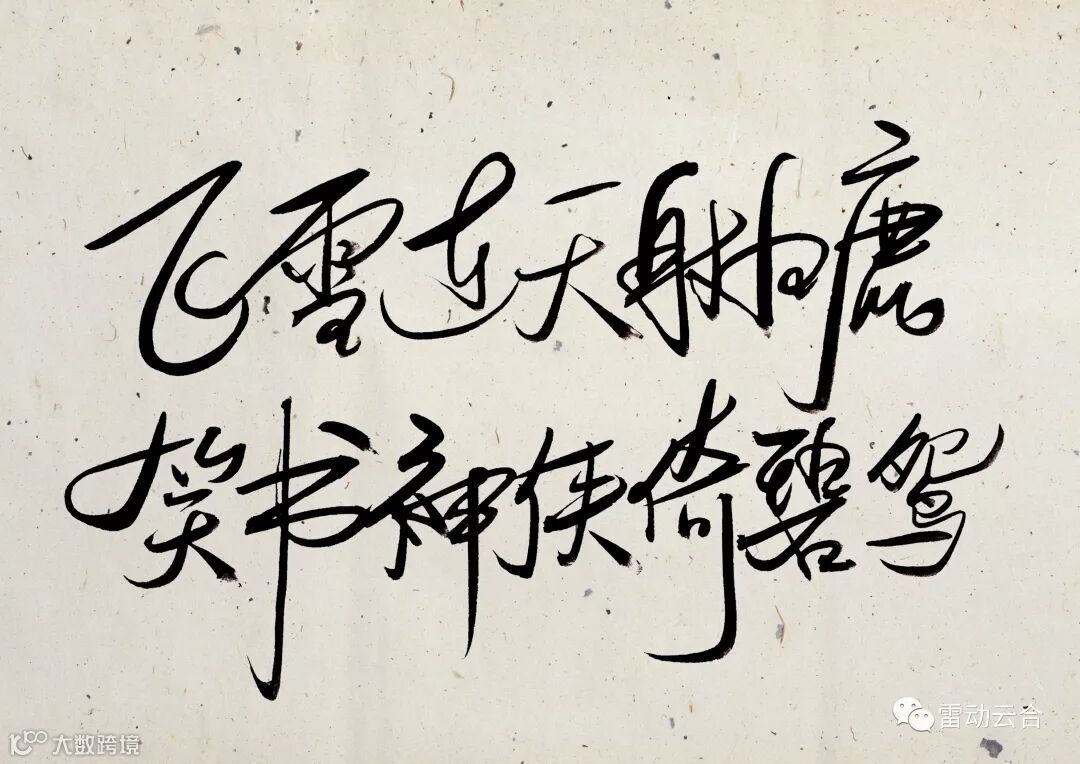 飞雪连天射白鹿
笑书神侠倚碧鸳
雷动云合
100 大数跨境